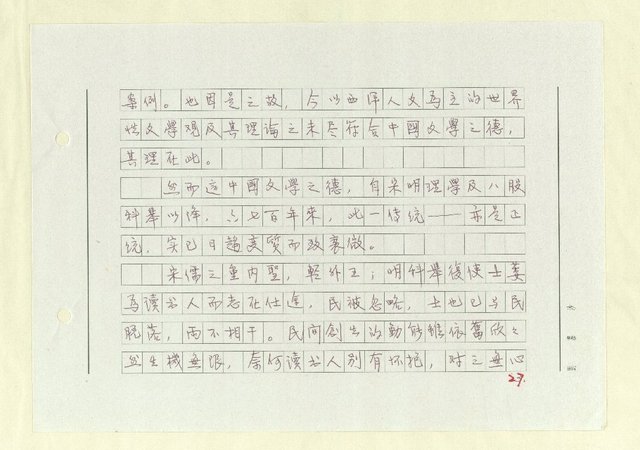 案例。也因是之故，今以西洋人文為主的世界
性文學观及其理論之未尽符合中國文學之德，
其理在此。
然而這中國文學之德，自宋明理學及八股
科舉以降，六七百年來，此一传統——亦是正
統，实已日趋变質而致衰微。
宋儒之重内聖，輕外王；明科舉復使士
為读书人而志在仕途，民被忽略，士也已与民
脱落，两不相干。民間創生的動能雖依舊欣々
然生機無限，奈何读书人别有怀抱，对之無心
27.